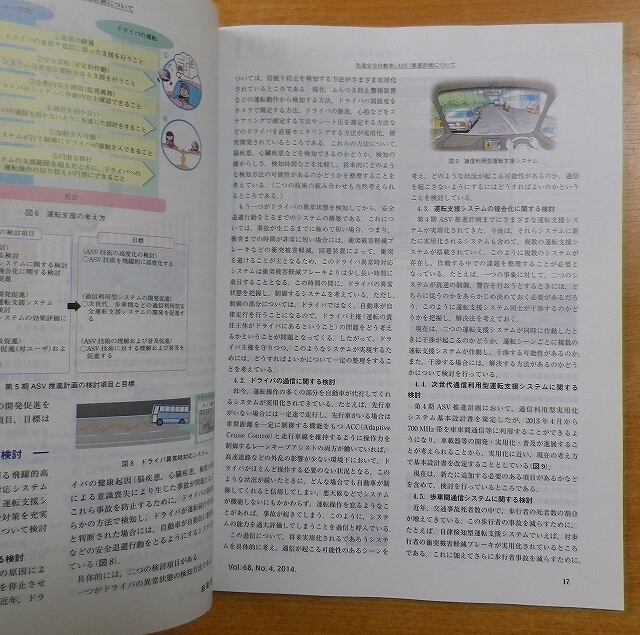 計画について
ドライバの運転
①意思の疎通
ドライバの意思や意図に沿った支援を行うこと
②安全運転(安定的作動)
③作動内容を確認(監視義務)
④過信を招かない
⑤強制介入可能
⑥円滑な移行
社会
図6 運転支援の考え方
の検討項目
目標
(ASV技術の高度化の検討)
○ASV技術を飛躍的に高度化する
(通信利用型システムの開発促進)
○次世代、歩車間などの通信利用型安全運転支援システムの開発を促進する
(ASV技術の理解および普及促進)
○ASV技術に対する理解および普及促進する
第5期ASV推進計画の検討項目と目標
図8 ドライバ異常時対応システム
イバの健康起因(脳疾患，心臓疾患，
による意識喪失により生じた事故が問題
これら事故を防止するために，ドライバの
らかの方法で検知し，ドライバが運転続行
と判断された場合には，自動車が自動的に
などの安全退行動をとるようにするシス
る(図8)。
具体的には，二つの検討項目がある。
一つがドライバの異常状態の検知方法であ
先進安全自動車(ASV)推進計画について
ついては，居眠り防止を検知する方法がさまざま実用化
されているところである．現在，ふらつき防止警報装置
などの運転動作から検知する方法，ドライバの開眼度を
カメラで測定する方法，ドライバの脈波，心拍などをス
テアリングで測定する方法やシート圧を測定する方法な
どのドライバを直接モニタリングする方法が実用化，研
究開発されているところである．これらの方法について，
脳疾患，心臓疾患などを検知できるのかどうか，検知の
確からしさ，検知時間などを比較し，将来的にどのよう
な検知方法の可能性があるのかどうかを整理することを
考えている．(二つの技術の組み合わせも当然考えられ
るところである。)
もう一つがドライバの異常状態を検知してから，安全
退避行動をとるまでのシステムの構築である．これにつ
いては，事故が生じるまでに極めて短い場合，つまり，
衝突までの時間が非常に短い場合には，衝突被害軽減ブ
レーキなどの衝突被害軽減，回避装置によって，衝突
を避けることが主となるため，このドライバ異常時対応
システムは衝突被害軽減ブレーキよりは少し長い時間に
着目することとなる．この時間の間に，ドライバの異常
状態を把握し，制御するシステムを考えている．ただし，
制御の部分については，ドライバではなく，自動車が自
律走行を行うことになるので，ドライバ主権(運転の責
任主体がドライバにあるということ)の問題をどう考え
るかということが問題となってくる．したがって，ドラ
イバ主権を守りつつ，このようなシステムが実現するた
めには，どうすればよいかについて一定の整理をするこ
とを考えている．
4.2. ドライバの過信に関する検討
昨今，運転操作の多くの部分を自動車が代行してくれ
るシステムが実用化されてきている．たとえば，先行車
がいない場合には一定速で走行し，先行車がいる場合は
車間距離を一定に制御する機能をもつACC(Adaptive
Cruse Control)と走行車線を維持するように操作力を
制御するレーンキープアシストの両方が働いていれば，
高速道路などの外乱の影響が少ない環境下において，ド
ライバがほとんど操作する必要のない状況となる．この
ような状況が続いたときに，どんな場合でも自動車が制
御してくれると過信してしまい，悪天候などでシステム
が機能しないにもかかわらず，運転操作を怠るようなこ
とがあれば，事故が起きてしまう．このように，システ
ムの能力を過大評価してしまうことを過信と呼んでいる．
この過信について，将来実用化されるであろうシステ
ムを具体的に考え，過信が起こる可能性のあるシーンを
図9 通信利用型運転支援システム
考え，どのような状況が起こる可能性があるのか，過信
を起こさないようにするにはどうすればよいのかという
ことを検討している．
4.3. 運転支援システムの複合化に関する検討
第4期ASV推進計画までにさまざまな運転支援シス
テムが実用化されてきた．今後は，それらシステムに新
たに実用化されるシステムも含めて，複数の運転支援シ
ステムが搭載されていく．このように複数のシステムが
存在し，作動する中での課題を整理することが必要と
なっている．たとえば，一つの事象に対して，二つのシ
ステムが真逆の制御，警告を行おうとするときには，ど
ちらに従うのかをあらかじめ決めておく必要があるだろ
う．このように運転支援システム同士が干渉するのかど
うかを把握し，解決法を考えておく．
現在は，二つの運転支援システムが同時に作動したと
きに干渉が起こるのかどうか，運転シーンごとに複数の
運転支援システムが作動し，干渉する可能性があるのか，
また，干渉する場合には，解決する方法があるのかどう
かについて検討を行っている．
4.4. 次世代通信利用型運転支援システムに関する
検討
第4期ASV推進計画において，通信利用型実用化シ
ステム基本設計書を策定したが，2013年4月から
700 MHz帯を車車間通信等に利用することができるよ
うになり，車載器等の開発・実用化・普及が進展するこ
とが考えられることから，実用化に近い，現在の考え方
で基本設計書を改定することとしている(図9)．
現在は，新たに追加する必要のある項目があるかなど
を含めて，検討を行っているところである．
4.5. 歩車間通信システムに関する検討
近年，交通事故死者数の中で，歩行者の死者数の割合
が増えてきている．この歩行者の事故を減らすために，
たとえば，自律検知型運転支援システムでいえば，対歩
行者の衝突被害軽減ブレーキが実用化されているところ
である．これに加えてさらに歩行者事故を減らすために，
Vol. 68, No. 4, 2014.
17